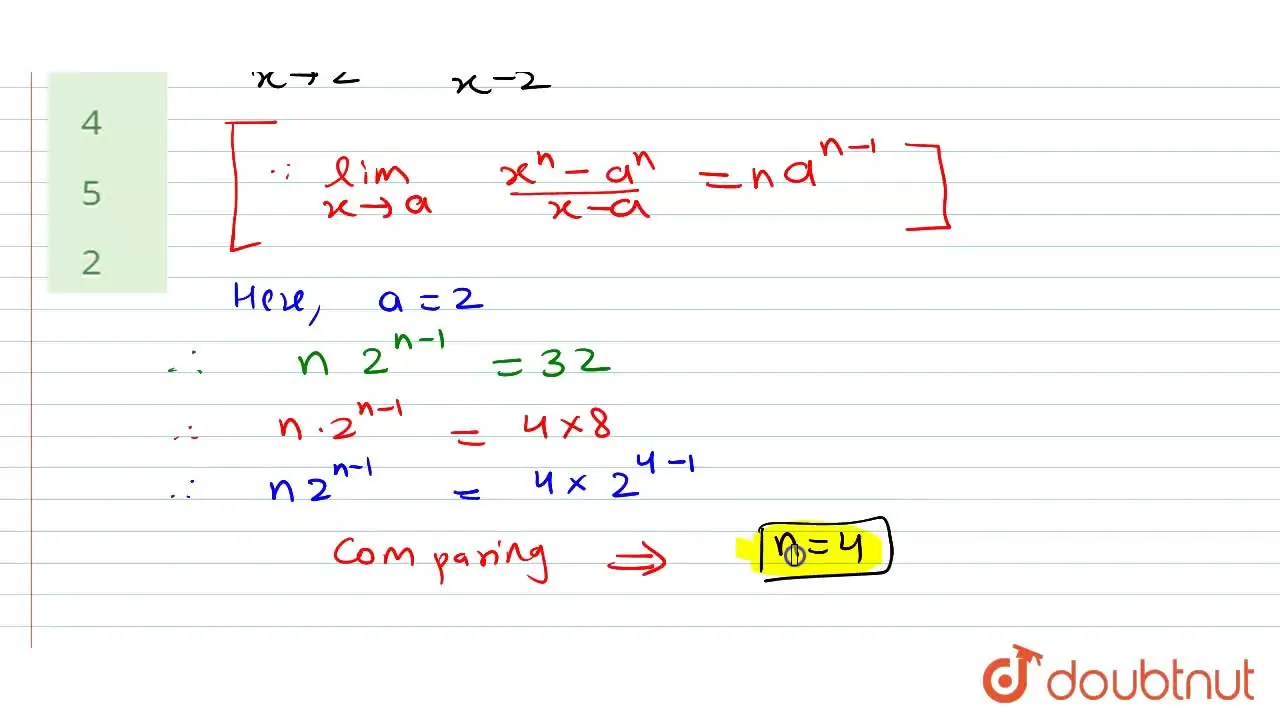 x→2 x-2
4
5
2
[∵ lim x→a (xⁿ - aⁿ)/(x-a) = n aⁿ⁻¹]
Here, a = 2
∴ n 2ⁿ⁻¹ = 32
∴ n · 2ⁿ⁻¹ = 4 × 8
∴ n 2ⁿ⁻¹ = 4 × 2⁴⁻¹
Comparing ⇒ n = 4
doubtnut